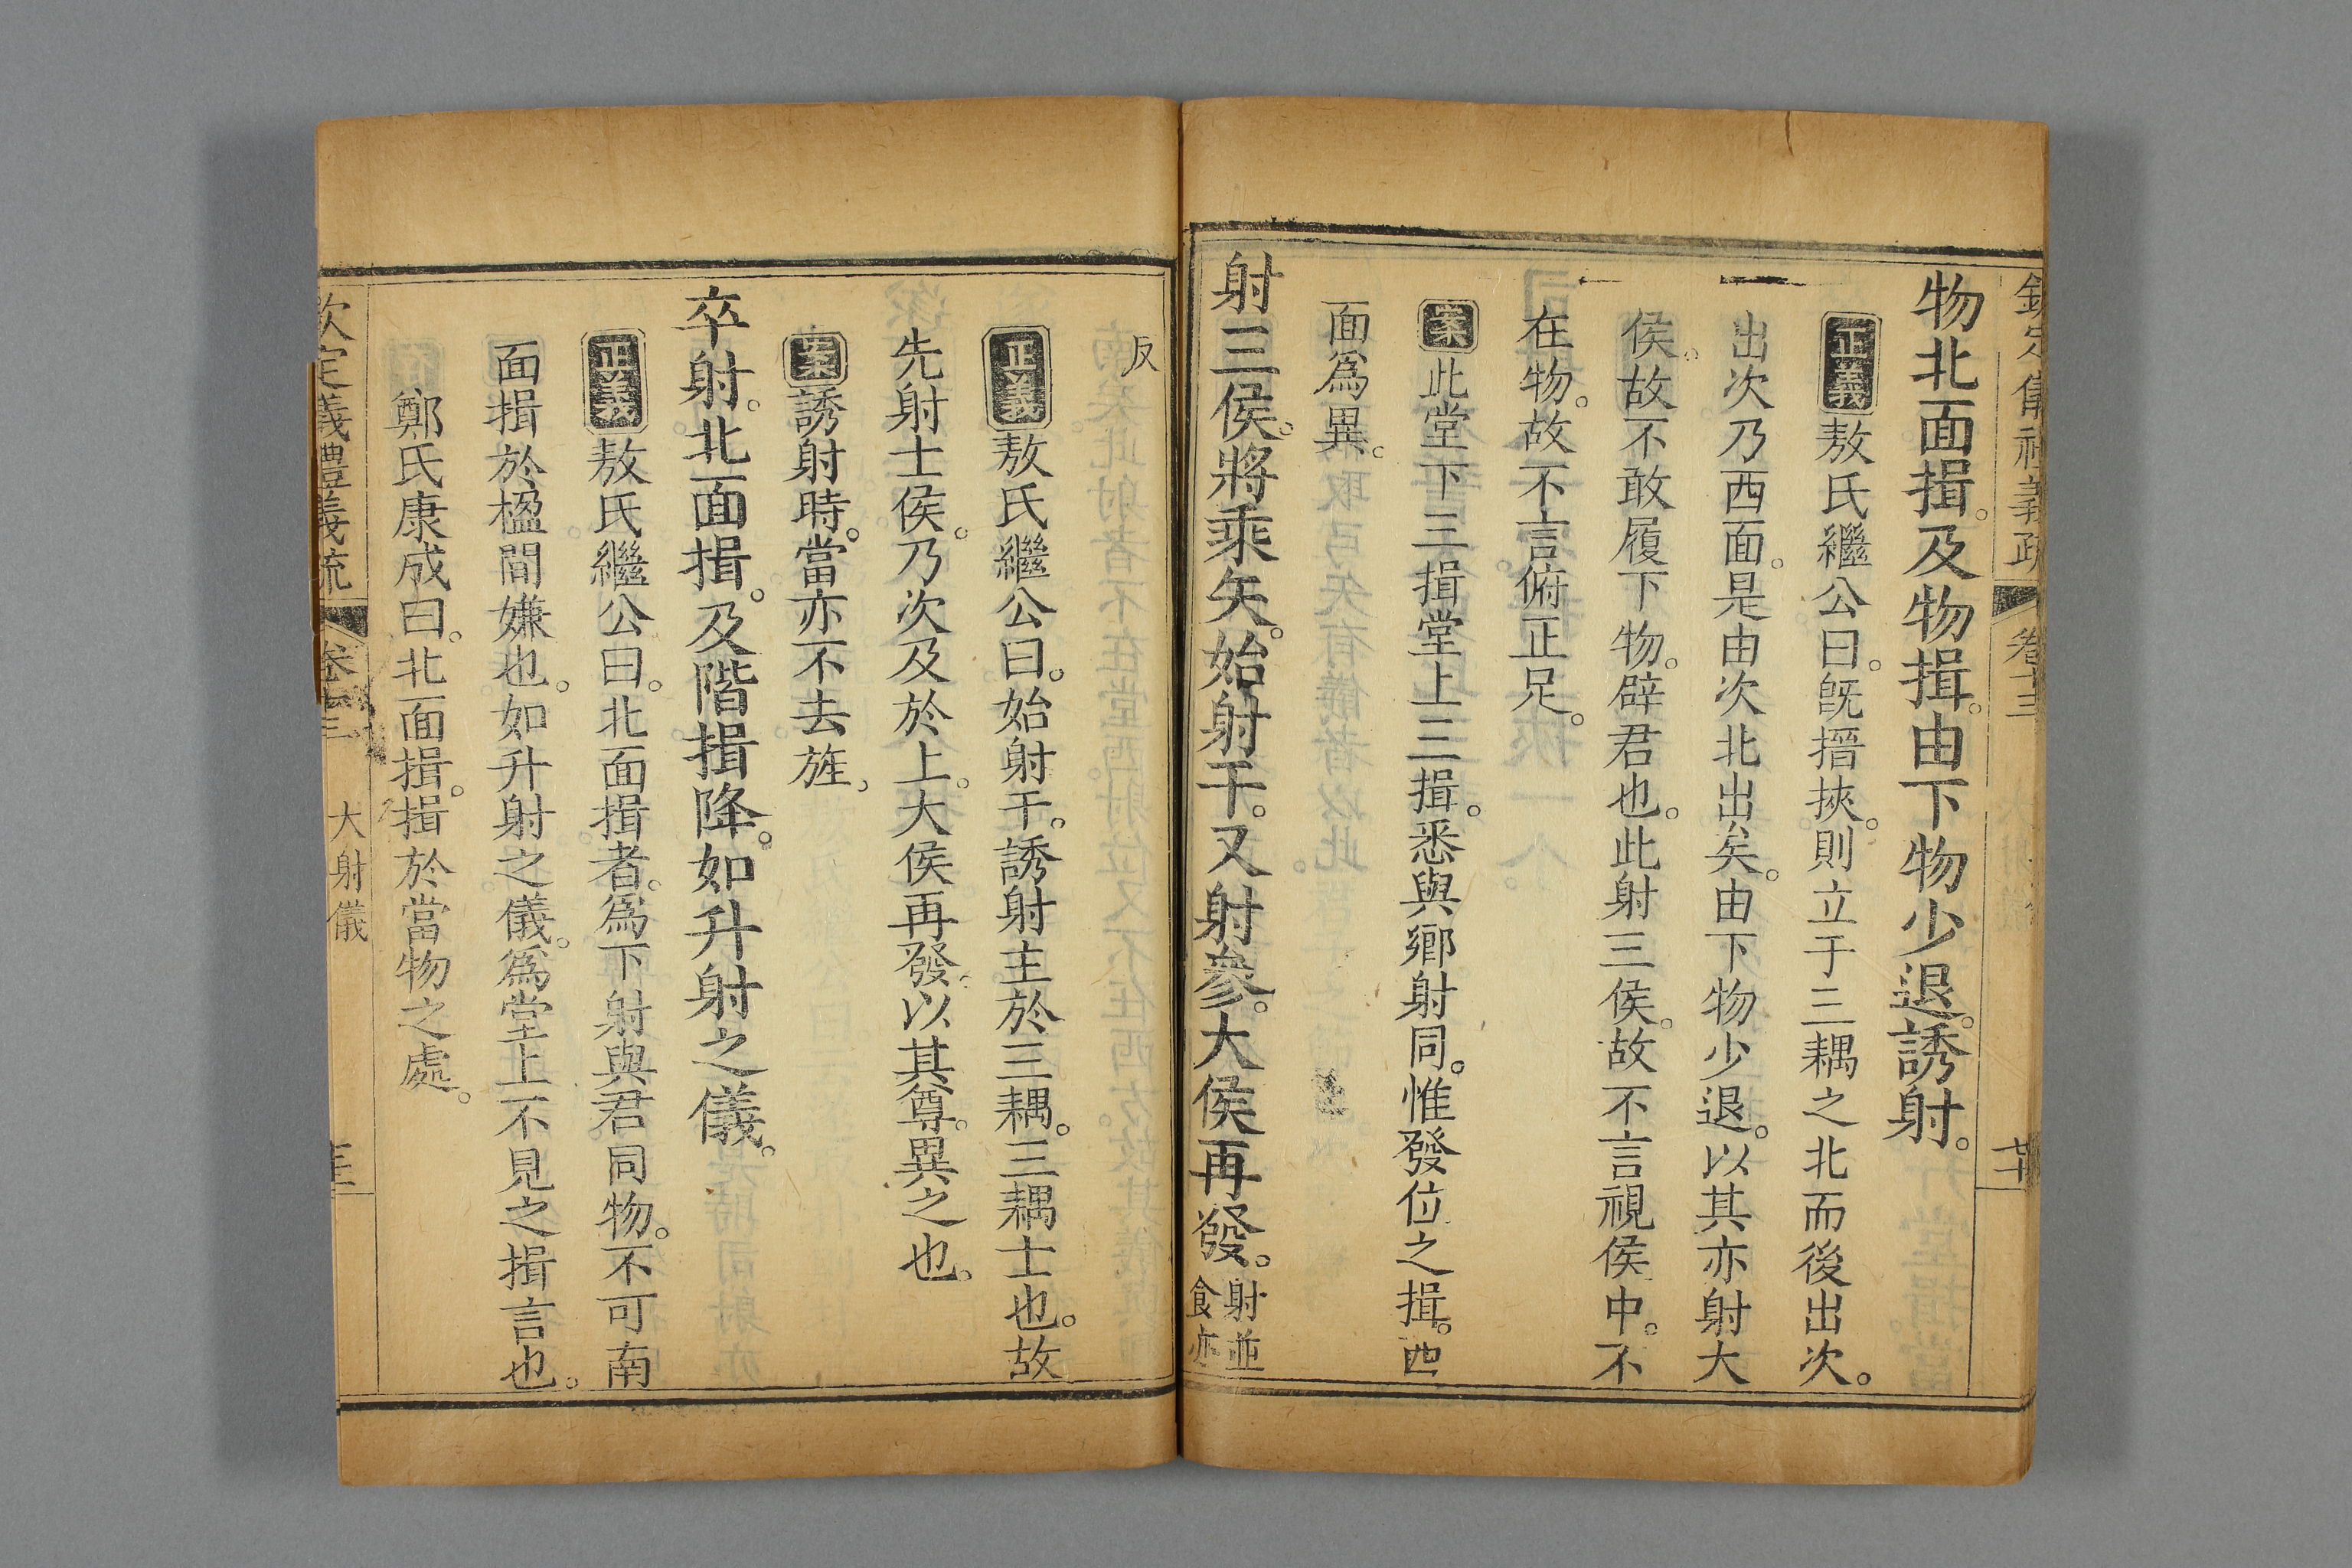 物北面揖。及物揖。由下物少退。誘射。
正義敖氏繼公曰。旣搢挾。則立于三耦之北而後出次。
出次乃西面。是由次北出矣。由下物少退。以其亦射大
侯。故不敢履下物。辟君也。此射三侯。故不言視侯中。不
在物。故不言俯正足。
案此堂下三揖堂上三揖。悉與鄉射同。惟發位之揖。西
面爲異。
射三侯。將乘矢。始射干。又射參。大侯再發。射並
食亦
反
正義敖氏繼公曰。始射干。誘射主於三耦。三耦士也。故
先射士侯。乃次及於上。大侯再發。以其尊。異之也。
案誘射時。當亦不去旌。
卒射。北面揖。及階揖降。如升射之儀。
正義敖氏繼公曰。北面揖者。爲下射與君同物。不可南
面揖於楹間嫌也。如升射之儀。爲堂上不見之揖言也。
鄭氏康成曰。北面揖。揖於當物之處。
欽定義禮義疏
卷三
大射儀